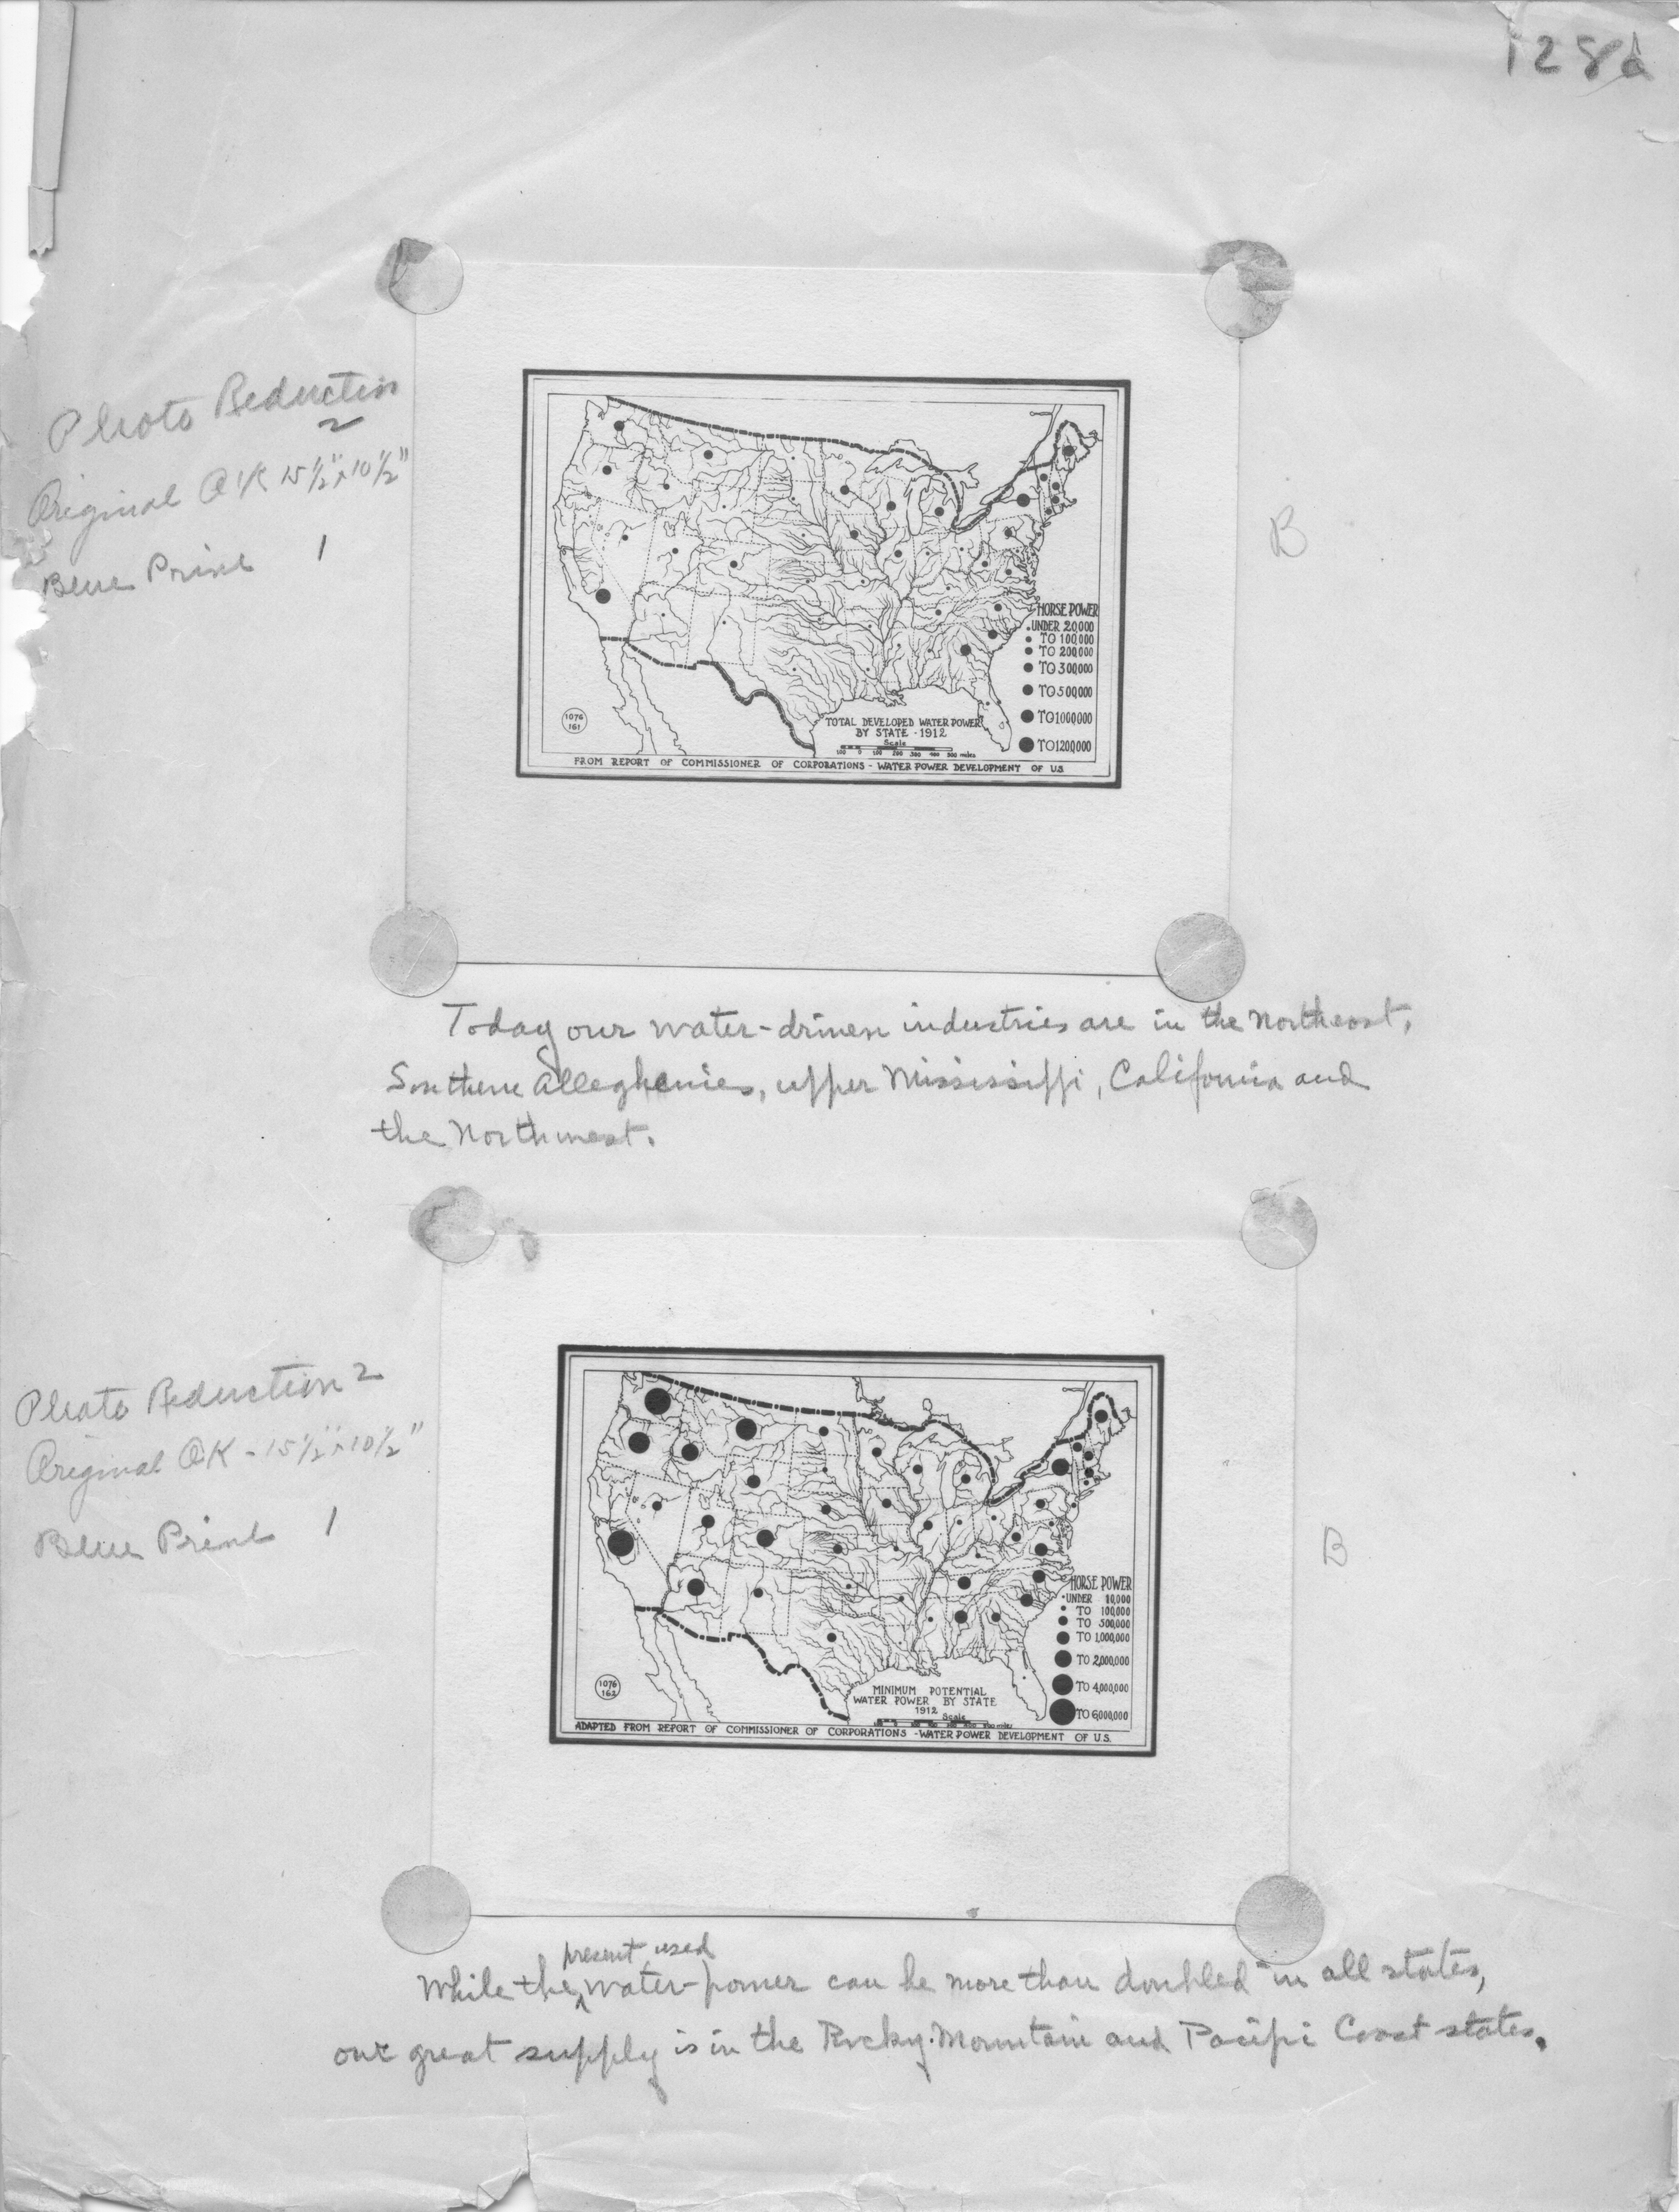 128d
Photo Reduction
2
Original OK 15½" x 10½"
Blue Print 1
B
HORSE POWER
UNDER 20,000
TO 100,000
TO 200,000
TO 300,000
TO 500,000
TO 1000,000
TO 1200,000
1076
161
TOTAL DEVELOPED WATER POWER
BY STATE - 1912
Scale
100 0 100 200 300 400 500 miles
FROM REPORT OF COMMISSIONER OF CORPORATIONS - WATER POWER DEVELOPMENT OF U.S.
Today our water-driven industries are in the Northeast,
Southern Alleghenies, upper Mississippi, California and
the Northwest.
Photo Reduction 2
Original OK - 15½" x 10½"
Blue Print 1
B
HORSE POWER
UNDER 10,000
TO 100,000
TO 500,000
TO 1,000,000
TO 2,000,000
TO 4,000,000
TO 6,000,000
1076
162
MINIMUM POTENTIAL
WATER POWER BY STATE
1912
Scale
ADAPTED FROM REPORT OF COMMISSIONER OF CORPORATIONS - WATER POWER DEVELOPMENT OF U.S.
present used
While the water-power can be more than doubled in all states,
our great supply is in the Rocky Mountain and Pacific Coast states.